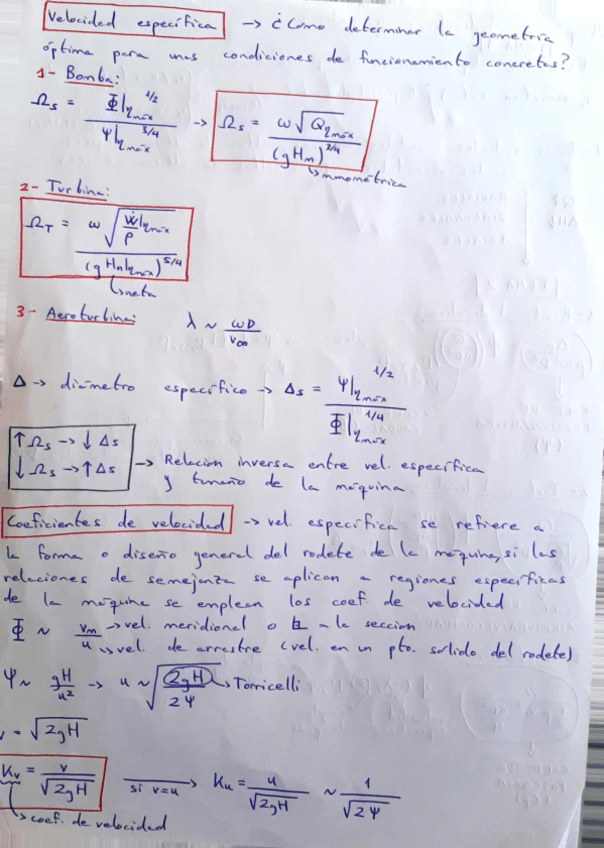 Velocidad específica → ¿Cómo determinar la geometría
óptima para unas condiciones de funcionamiento concretas?
1- Bomba:
Ωs = Φ|ηmáx^1/2 / Ψ|ηmáx^3/4 → Ωs = ω√Qηmáx / (gHm)^3/4
↳ manométrica
2- Turbina:
ΩT = ω√(Ẇ|ηmáx / ρ) / (gHn|ηmáx)^5/4
↳ neta
3- Aeroturbina: λ ~ ωD / v∞
Δ → diámetro específico → Δs = Ψ|ηmáx^1/2 / Φ|ηmáx^1/4
↑Ωs → ↓Δs
↓Ωs → ↑Δs
→ Relación inversa entre vel. específica
y tamaño de la máquina
Coeficientes de velocidad → vel. específica se refiere a
la forma o diseño general del rodete de la máquina, si las
relaciones de semejanza se aplican a regiones específicas
de la máquina se emplean los coef. de velocidad
Φ ~ vm / u → vel. meridional o ⊥ a la seccion
↳ vel. de arrastre (vel. en un pto. sólido del rodete)
Ψ ~ gH / u² → u ~ √(2gH / 2Ψ) → Torricelli
v = √2gH
Kv = v / √2gH si v=u → Ku = u / √2gH ~ 1 / √2Ψ
↳ coef. de velocidad